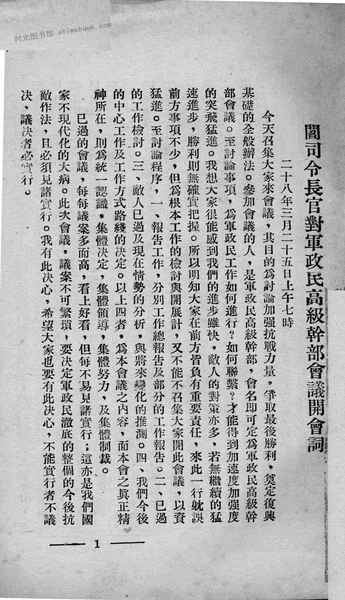 閻司令長官對軍政民高級幹部會議開會詞
二十八年三月二十五日上午七時
今天召集大家來會議，其目的爲討論加强抗戰力量，爭取最後勝利，奠定復興
基礎的全般辦法。參加會議的人，是軍政民高級幹部，會名即可定爲軍政民高級幹
部會議。至討論事項，爲軍政民工作如何進行？如何聯繫？才能得到加速度加强度
的突飛猛進。我想大家很能感到我們的進步雖快，敵人的對策亦多，若無繼續的猛
速進步，勝利則無確實把握。所以明知大家在前方皆負有重要責任，來此一行就誤
前方事項不少，但爲根本工作的檢討與開展計，又不能不召集大家開此會議，以資
猛進。至討論程序，一、報告工作，分別工作總報告及部分的工作報告。二、已過
的工作檢討。三、敵人已過及現在情勢的分析，與將來變化的推測。四、我們今後
的中心工作及工作方式路綫的決定。以上四者，爲本會議之內容，而本會之眞正精
神所在，則爲統一認識，集體決定，集體領導，集體努力，及集體制裁。
已過的會議，每每議案多而高，看上好看，但每不易見諸實行；這亦是我們國
家不現代化的大病。此次會議，議案不可繁瑣，要決定軍政民澈底的整個的今後抗
敵作法，且必須見諸實行。我有此決心，希望大家也要有此決心，不能實行者不議
決，議決者必實行。
1